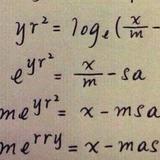 yr² = logₑ(x/m -
e^(yr²) = x/m - sa
me^(yr²) = x - msa
me^(rry) = x - mas